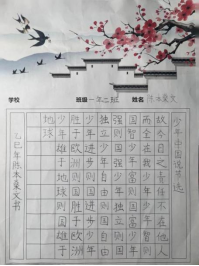 学校
班级 一年二班
姓名
少年中国说节选
故今日之责任不在他人
而全在我少年少年智则
国智少年富则国富少年
强则国强少年独立则国
独立少年自由则国自由
少年进步则国进步少年
胜于欧洲则国胜于欧洲
少年雄于地球则国雄于
地球
乙巳年